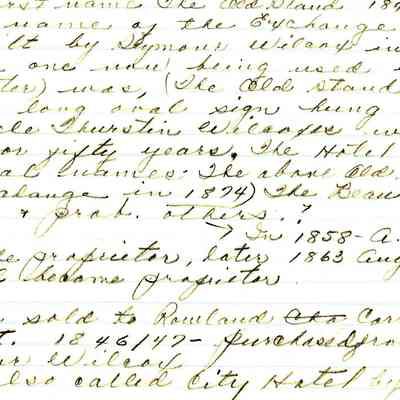 rst name The Old Stand 18
name of the Exchange
ilt by Seymour Wilcox in
one now being used
ter) was, (The Old Stand
long oval sign hung
cle Thurstin Wilcoxes w
or fifty years. The Hotel
al names: The above Old
xchange in 1874) The Beau
& prob. others.?
→ In 1858- A.
e proprietor, later 1863 Aug
became proprietor.
sold to Rowland Cor
t. 1846/47- purchased fro
ur Wilcox
lso called City Hotel by